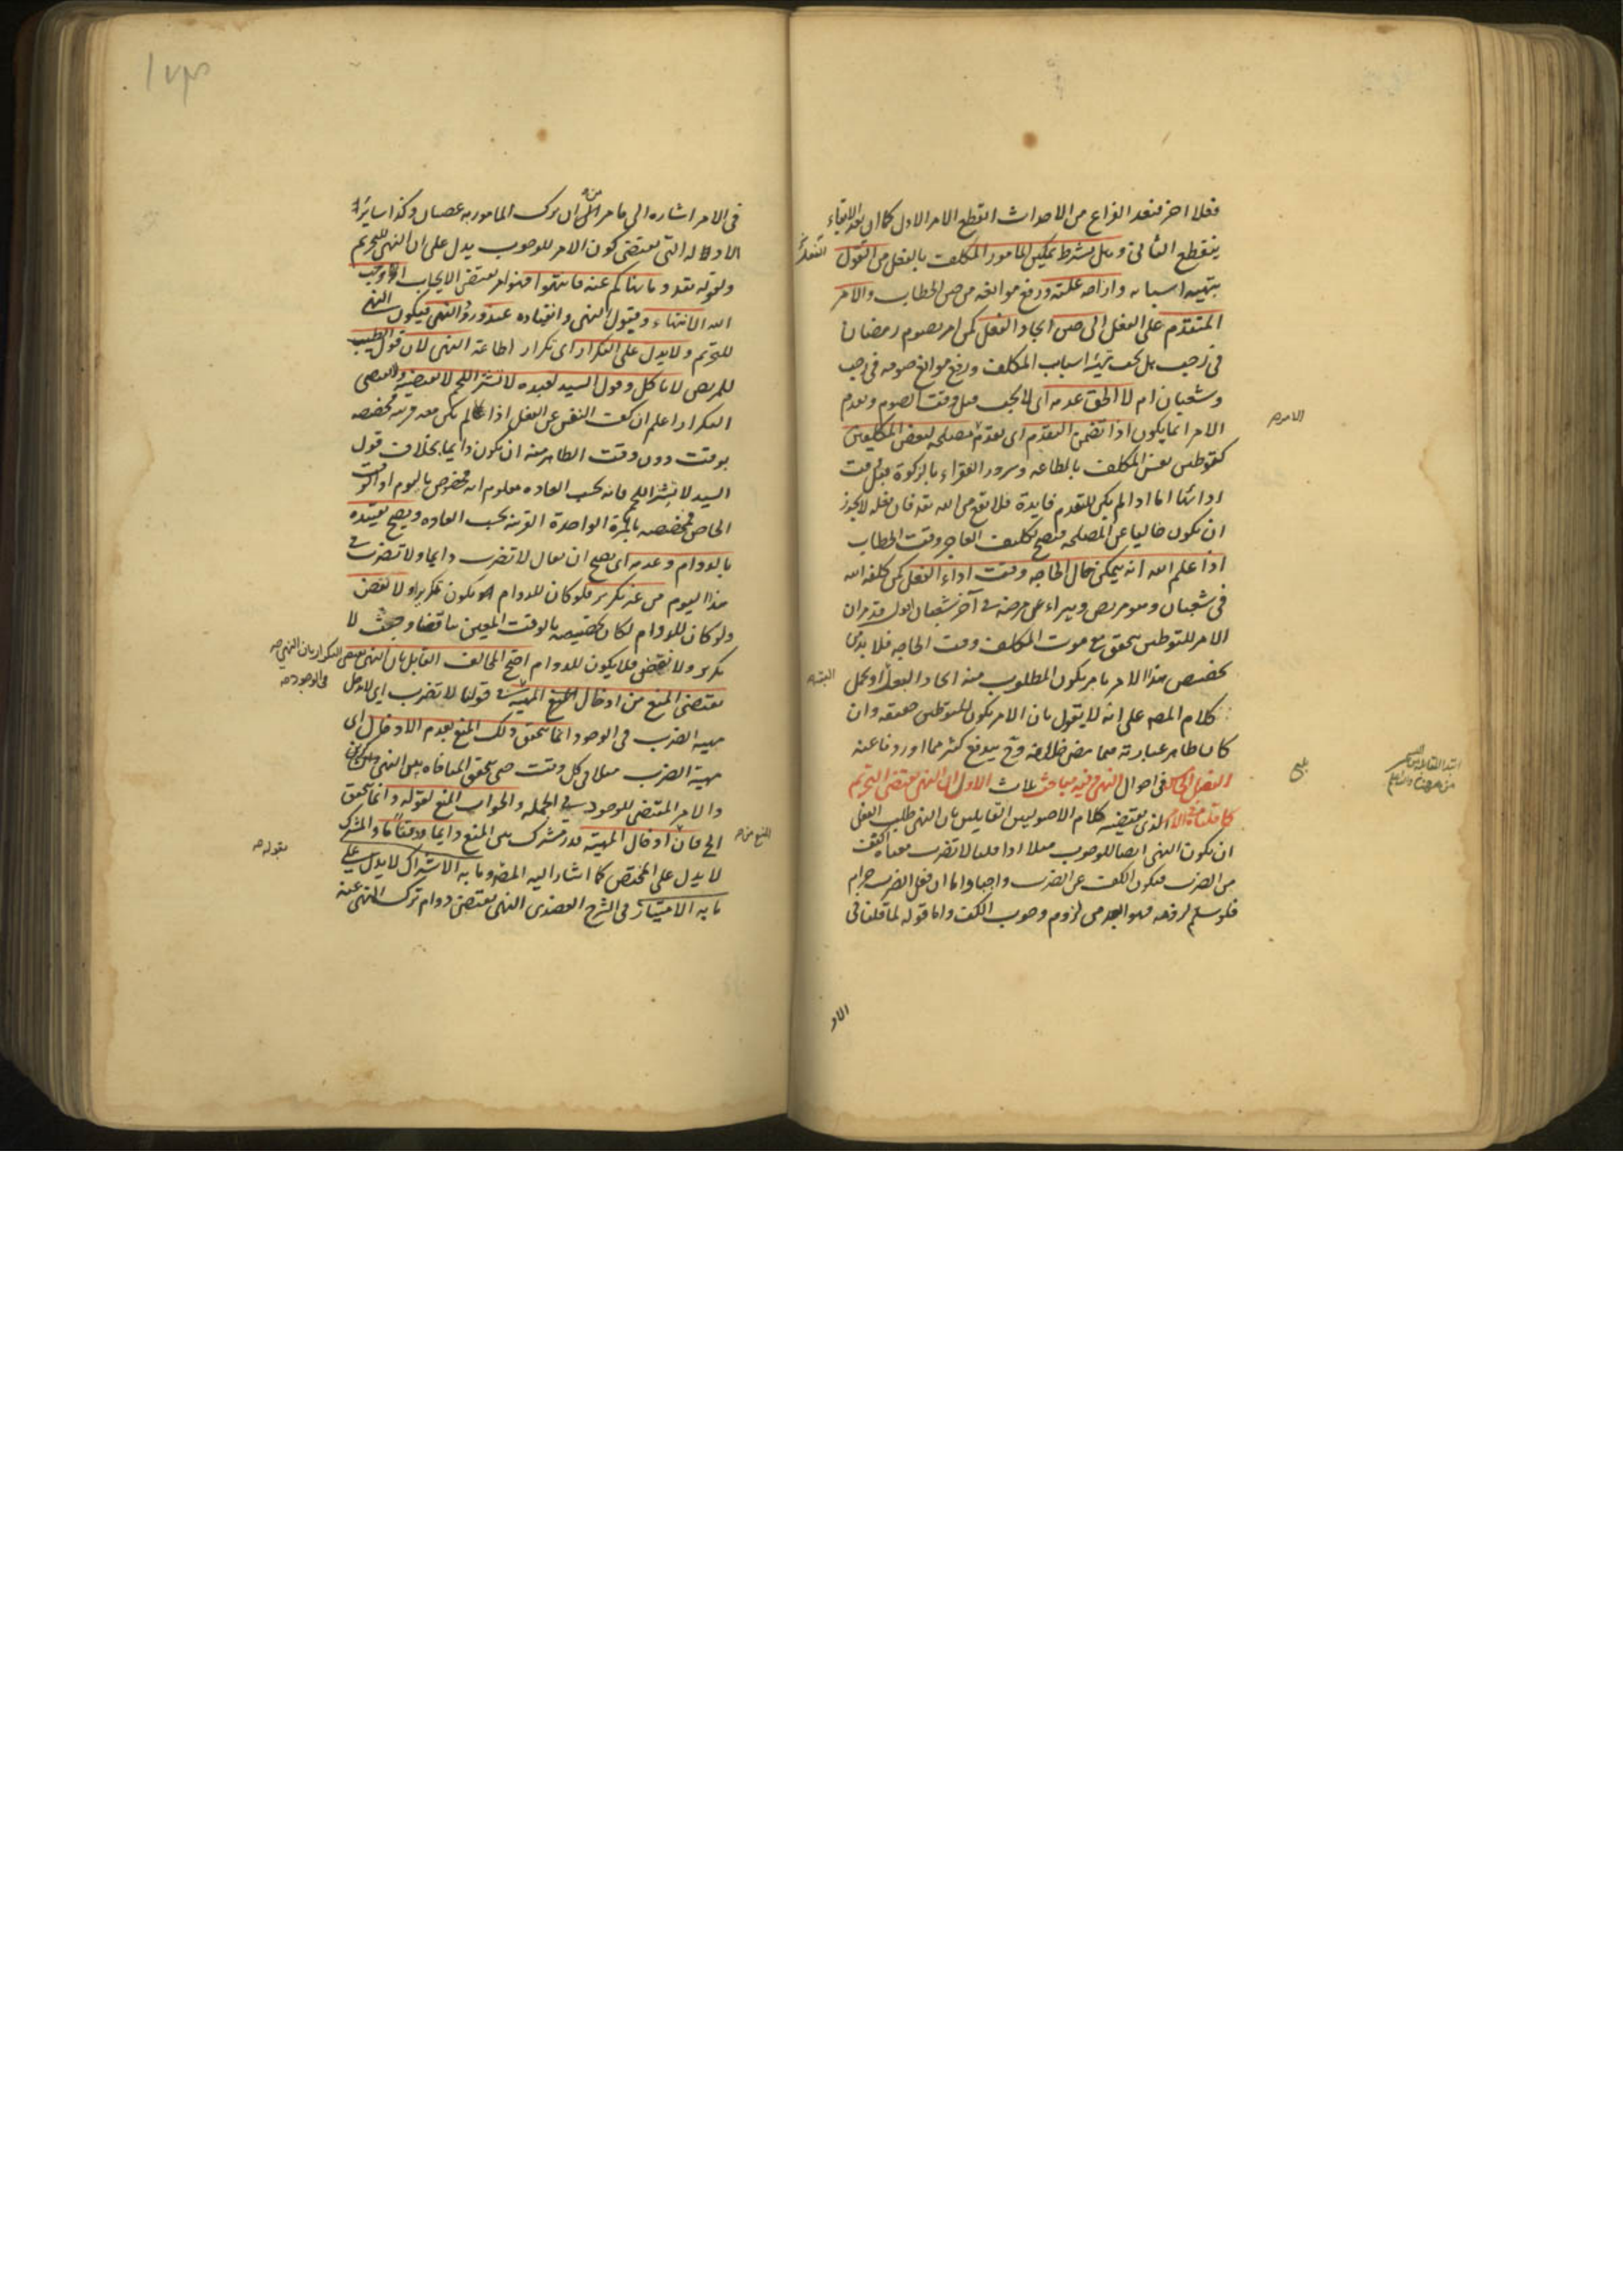 فعلا اخر فبعد الفراغ من الاحداث انقطع الامر الاول كما ان بعد الابقاء
ينقطع الثانى وهل يشترط تمكين المامور المكلف بالفعل من القول
بتهيه اسبابه وازاحه علته ورفع موانعه من حين الخطاب والامر
المتقدم على الفعل الى حين ايجاد الفعل كمن امر بصوم رمضان
فى رجب هل يجب تهيئه اسباب المكلف ورفع موانع صومه فى رجب
وشعبان ام لا الحق عدمه اى لا يجب قبل وقت الصوم وتقدم
الامر انما يكون اذا تضمن التقدم اى تقدمه مصلحه لبعض المكلفين
كتوطين نفس المكلف بالطاعه وسرور الفقراء بالزكوة قبل وقت
ادائها اما اذا لم يكن للتقدم فايدة فلا يقع من الله تعه فان فعله لا يجوز
ان يكون خاليا عن المصلحه فيصح تكليف العاجز وقت الخطاب
اذا علم الله انه يتمكن حال الحاجه وقت اداء الفعل كمن كلفه الله
فى شعبان وهو مريض ويبراء عن مرضه فى آخر شعبان اقول قد مر ان
الامر للتوطين يتحقق مع موت المكلف وقت الحاجه فلا بد من
تخصيص هذا الامر بامر يكون المطلوب منه ايجاد الفعل او يحمل
كلام المصه على انه لا يقول بان الامر يكون للتوطين حقيقه وان
كان ظاهر عبارته فيما مضى خلافه وح يندفع كثير مما اوردنا عنه
الفصل الخامس فى احوال النهى وفيه مباحث ثلاث الاول ان النهى يقتضى التحريم
كما قلنا فى الامر الذى يقتضيه كلام الاصوليين القايلين بان النهى طلب الفعل
ان يكون النهى ايضا للوجوب مثلا اذا قلنا لا تضرب معناه كف
من الضرب فيكون الكف عن الضرب واجبا واما ان فعل الضرب حرام
فلو سلم لزومه فهو ابعد من لزوم وجوب الكف واما قوله لما قلنا فى
الامر
البته
الاد
فى الامر اشاره الى ما مر من ان ترك المامور به عصيان وكذا ساير
الادله التى يقتضى كون الامر للوجوب يدل على ان النهى للتحريم
ولقوله تعه وما نهاكم عنه فانتهوا فهو امر يقتضى الايجاب اوجب
الله الانتهاء وقبول النهى وانقياده عند ورود النهى فيكون النهى
للتحريم ولا يدل على التكرار اى تكرار اطاعة النهى لان قول الطبيب
للمريض لا تاكل وقول السيد لعبده لا تشتر اللحم لا يقتضيه
التكرار اعلم ان كف النفس عن الفعل اذا لم يكن معه قرينه مخصصه
بوقت دون وقت الظاهر منه ان يكون دايما بخلاف قول
السيد لا تشتر اللحم فانه بحسب العاده معلوم انه مخصوص باليوم او الوقت
الخاص فيخصصه بالمرة الواحدة القرينه بحسب العاده ويصح تقييده
بالدوام وعدمه اى يصح ان يقال لا تضرب دايما ولا تضرب فى
هذا اليوم من غير تكرير فلو كان للدوام لكان يكون تكريرا ولا نقض
ولو كان للدوام لكان تخصيصه بالوقت المعين تناقضا وحيث لا
تكرير ولا نقض فلا يكون للدوام احتج المخالف القايل بان النهى يقتضى التكرار بان النهى
يقتضى المنع من ادخال المهية فى قولنا لا تضرب اى لا تدخل
مهية الضرب فى الوجود انما يتحقق ذلك المنع بعدم الادخال اى
مهية الضرب مثلا فى كل وقت حتى يتحقق المنافاه بين النهى
والامر المقتضى للوجود فى الجمله والجواب المنع لقوله وانما يتحقق
الخ فان ادخال المهية قدر مشترك بين المنع دايما ووقتا ما والمشترك
لا يدل على المختص كما اشار اليه المصه وما به الاشتراك لا يدل على
ما به الامتياز فى الشرح العضدى النهى يقتضى دوام ترك المنهى عنه
فى الوجود
المنع من
بقوله